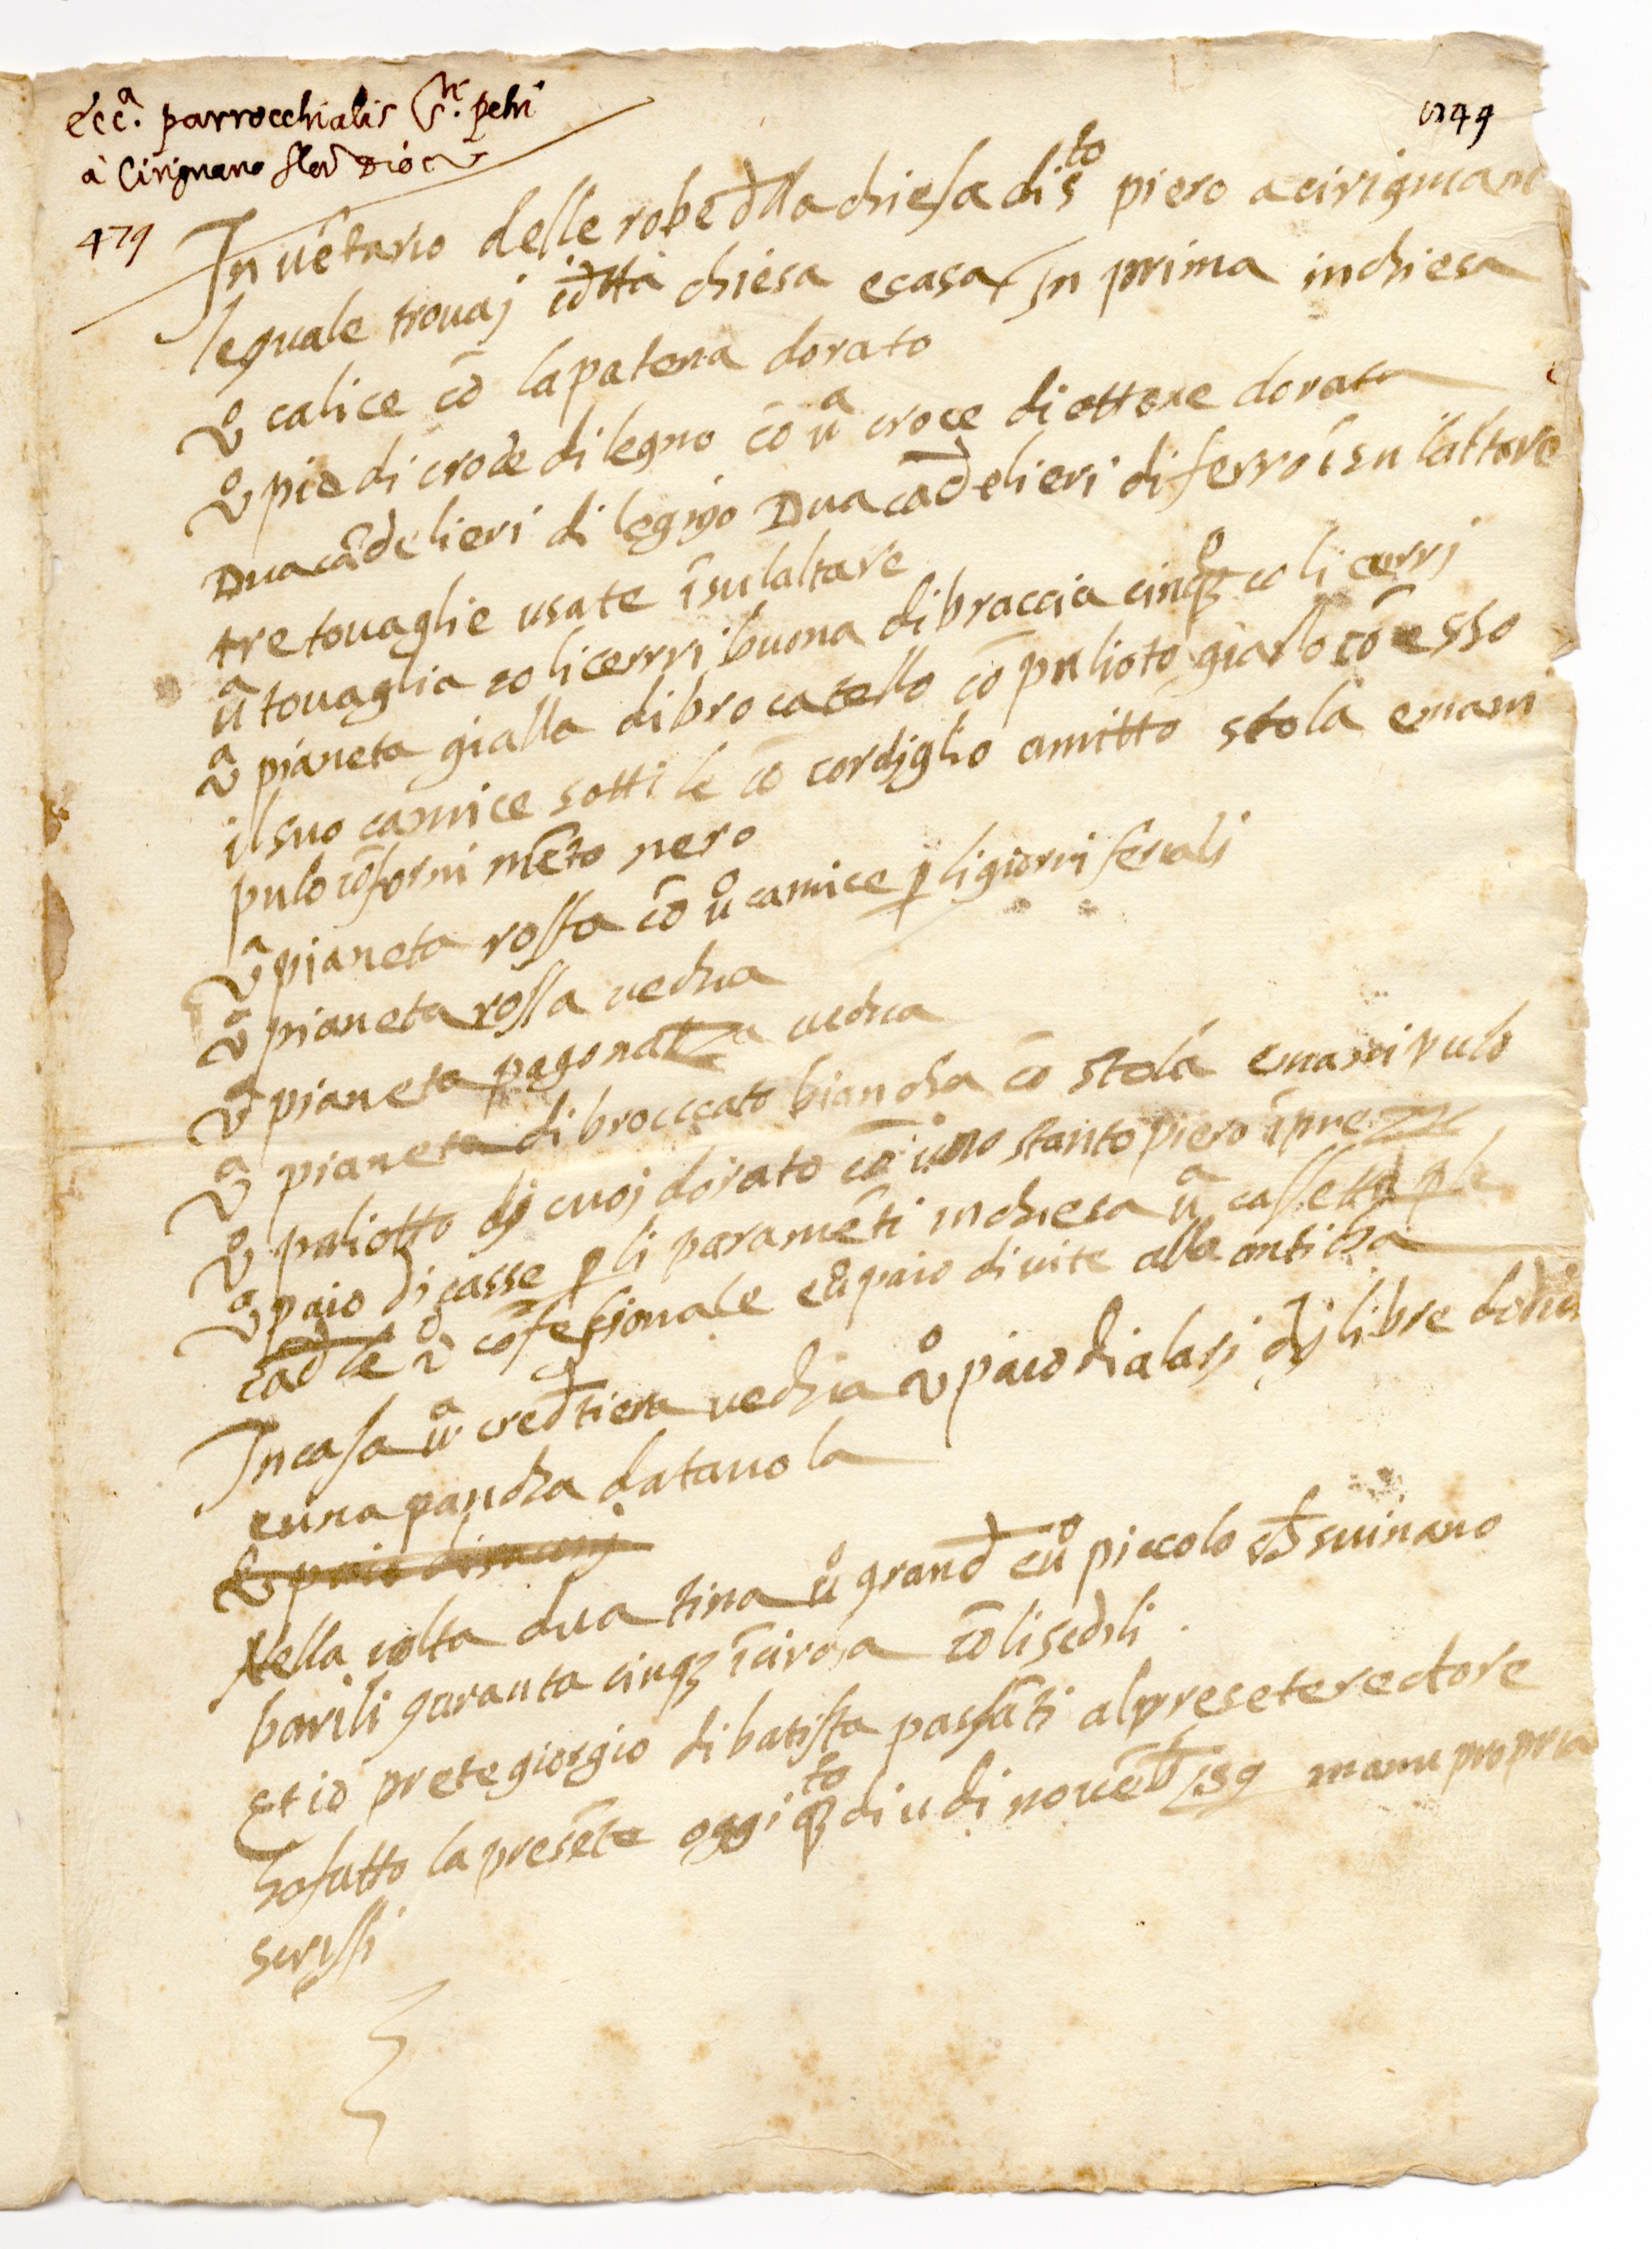 Ecc.ª parrocchialis S.ti petri
à Cirignano flor Dioc
1244
479
Inuētario delle robe dlla chiesa di s.to piero a cirignano
lequale trouaj ī dtta chiesa ecasa In prima inchiesa
vº calice cō lapatena dorato
vº pie di croce di legno cō uª croce di ottone dorata
Dua cādelieri di legnio Dua cādelieri diferro īsu laltare
tre touaglie usate īsulaltare
uª touaglia co licerrri buona dibraccia cinq co li cerrj
vª pianeta gialla dibrocatello cō pulioto giallo cō esso
il suo camice sottile cō cordiglio amitto stola emani
pulo cō forni mēto nero
vª pianeta rossa cō uº camice p ligiorni feriali
vª pianeta rossa uechia
vª pianeta pagonaza uechia
vª pianeta dibroccato biancha cō stola emanipulo
vº paliotto dj cuoj dorato cō uno santo piero ī prezze
vº paio di casse p li paramēti inchiesa uª cassetta p le
cādle vº cōfessionale euº paio di uite alla anticha
Incasa uª credtiera uechia vº paio dialarj dj libre dodici
euna pancha datauola
Nella uolta dua tina uº grand euº piccolo ch suinano
barili quranta cinq īcircha cōlisedili
Et io prete giorgio dibatista passāti alpresete rectore
hofatto la presēte oggi qto di u di nouēb 159 manu propria
scrissi